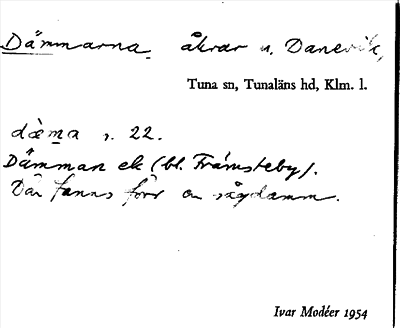 Dämmarna, åkrar u. Danevik,
Tuna sn, Tunaläns hd, Klm. l.
dèma r. 22.
Dämman ek (bl. Främsteby).
Där fanns förr en sågdamm.
Ivar Modéer 1954